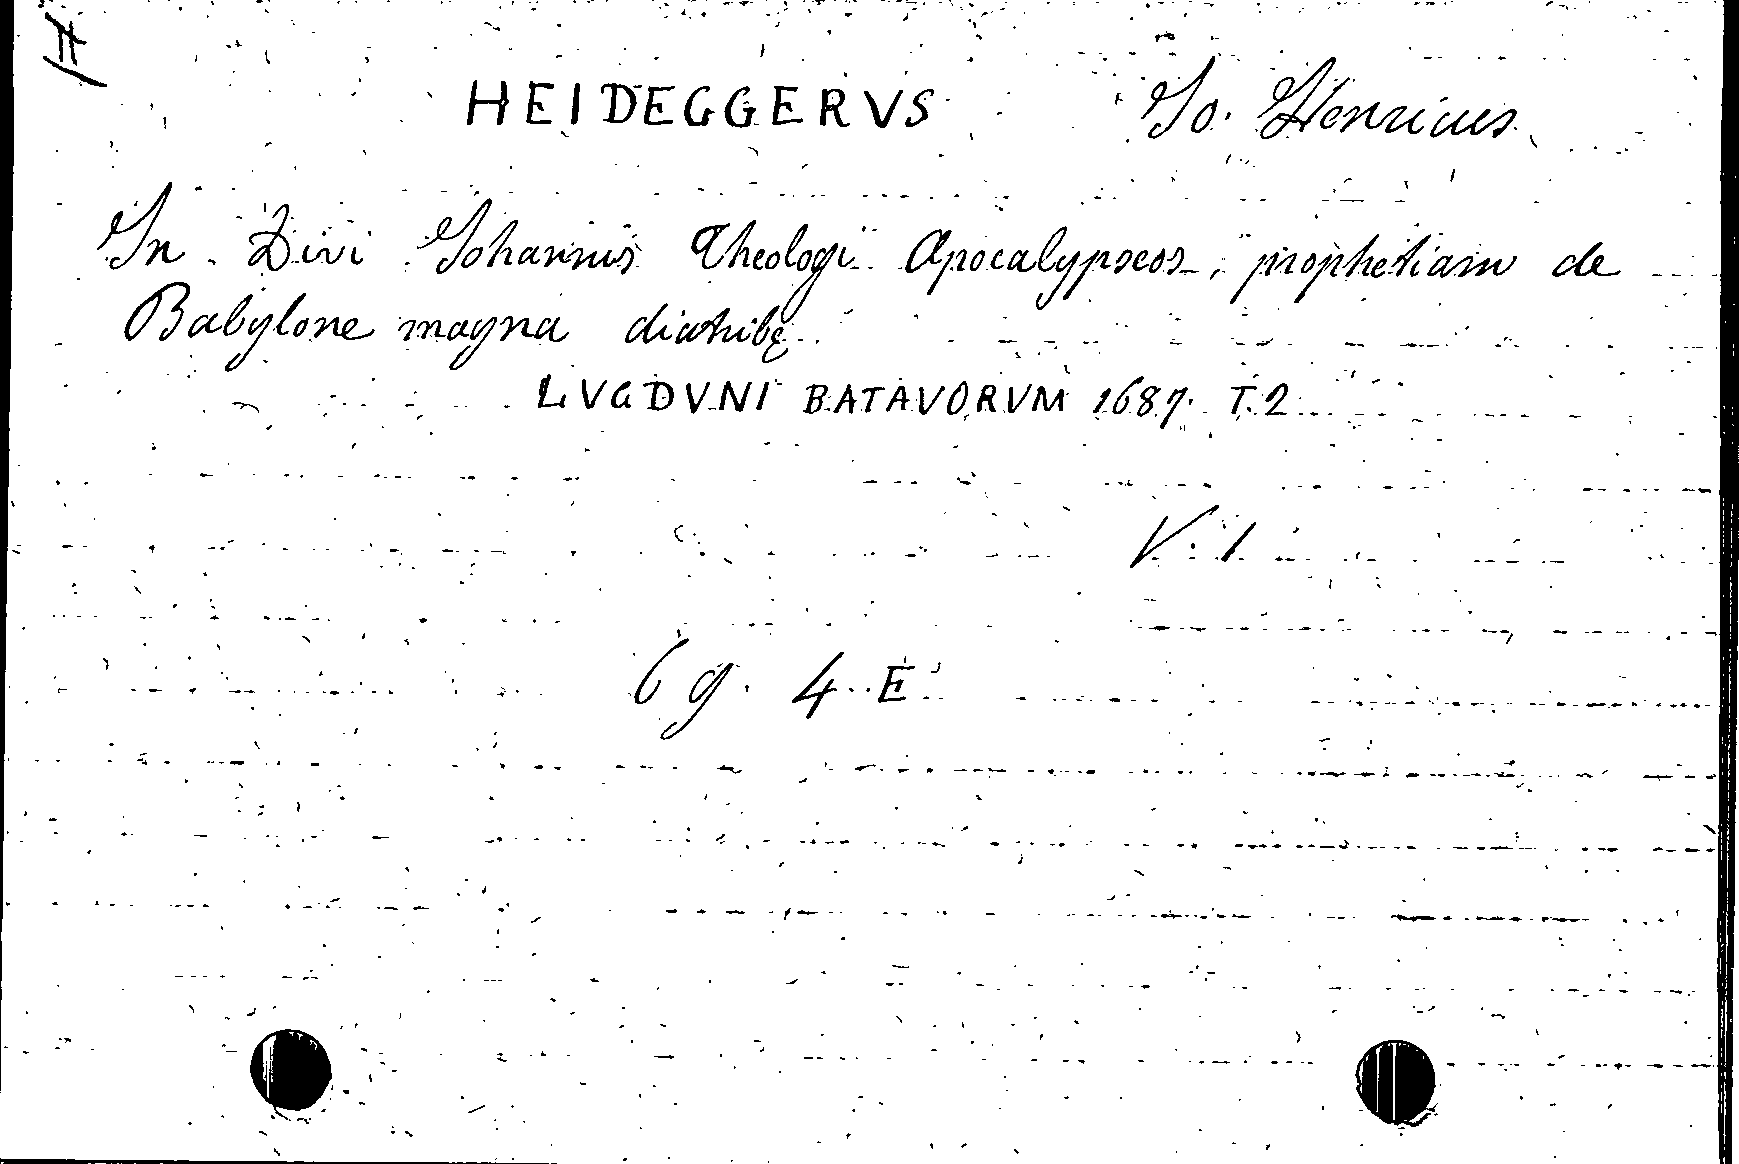 HEIDEGGERVS Jo. Henricus
In Divi Johannis Theologi Apocalypseos, prophetiam de
Babylone magna diatribę
LVGDVNI BATAVORVM 1687. T. 2
V. 1
6 g. 4. E